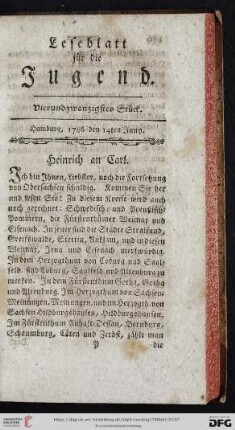 Leseblatt
für die
Jugend.
Vierundzwanzigstes Stück.
Hamburg, 1786 den 14ten Juny.
Heinrich an Carl.
Ich bin Ihnen, Liebster, noch die Fortsetzung
von Obersachsen schuldig. Kommen Sie her
und lesen Sie: Zu diesem Kreise wird auch
noch gerechnet: Schwedisch- und Preußisch-
Pommern, die Fürstenthümer Weimar und
Eisenach. In jener sind die Städte Stralsund,
Greifswalde, Stettin, Anklam, und in diesen
Weimar, Jena und Eisenach merkwürdig.
In dem Herzogthum von Coburg und Saal-
feld, sind Coburg, Saalfeld und Altenburg zu
merken. In dem Fürstenthum Gotha, Gotha
und Altenburg. Im Herzogthum von Sachsen-
Meinungen, Meinungen, und im Herzogth. von
Sachsen-Hildburghausen, Hildburghausen.
Im Fürstenthum Anhalt: Dessau, Bernburg,
Schaumburg, Cöten und Zerbst, zählt man
die